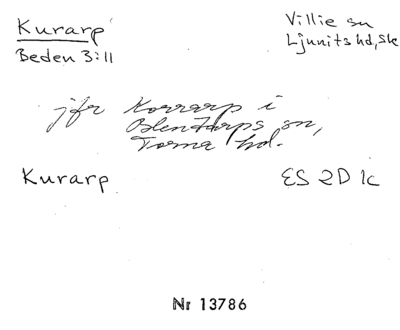 Kurarp
Villie sn
Ljunits hd, Sk
Beden 3:11
jfr Korrarp i
Blentarps sn,
Torna hd.
Kurarp
ES 2D 1c
Nr 13786